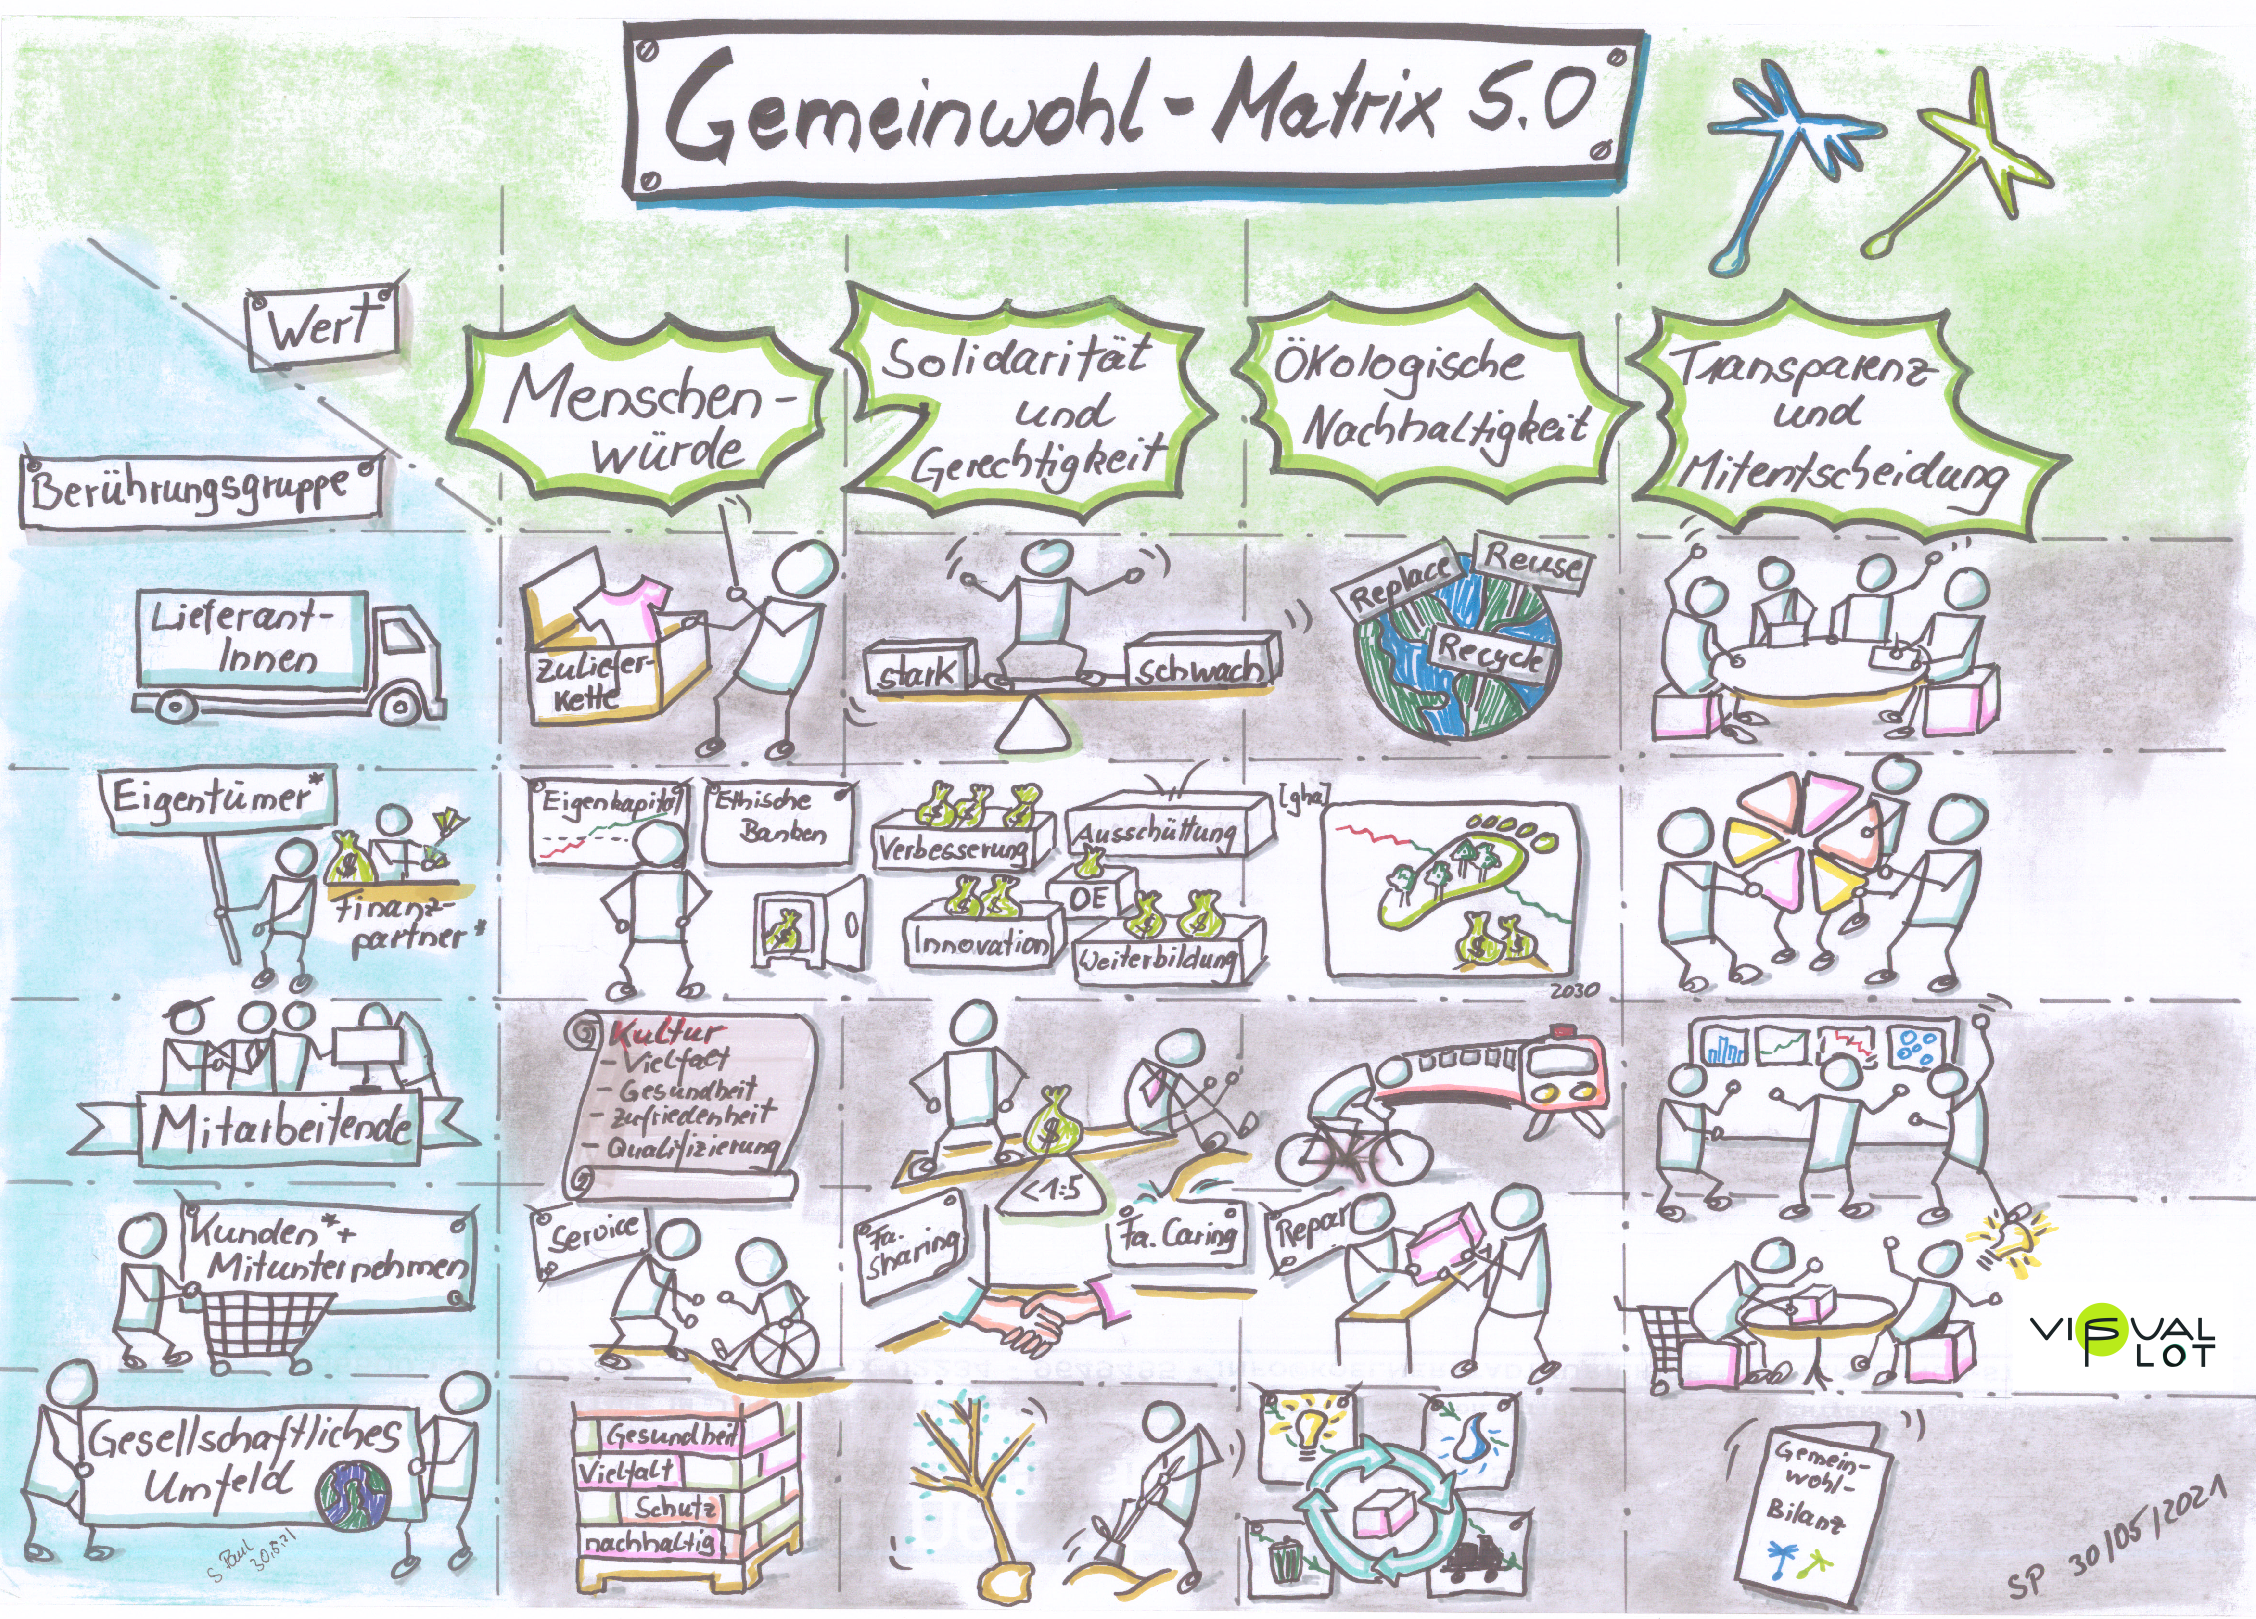 Gemeinwohl - Matrix 5.0
Wert
Berührungsgruppe
Menschen-
würde
Solidarität
und
Gerechtigkeit
Ökologische
Nachhaltigkeit
Transparenz
und
Mitentscheidung
Lieferant-
Innen
Zuliefer-
kette
stark
schwach
Replace
Reuse
Recycle
Eigentümer*
Finanz-
partner*
Eigenkapital
Ethische
Banken
Verbesserung
Ausschüttung
OE
Innovation
Weiterbildung
[gha]
2030
Mitarbeitende
Kultur
- Vielfalt
- Gesundheit
- Zufriedenheit
- Qualifizierung
<1:5
Kunden*+
Mitunternehmen
Service
Fa.
sharing
Fa. Caring
Repar
VISUAL
PLOT
Gesellschaftliches
Umfeld
S Paul
30.5.21
Gesundheit
Vielfalt
Schutz
nachhaltig
Gemein-
wohl-
Bilanz
SP 30/05/2021